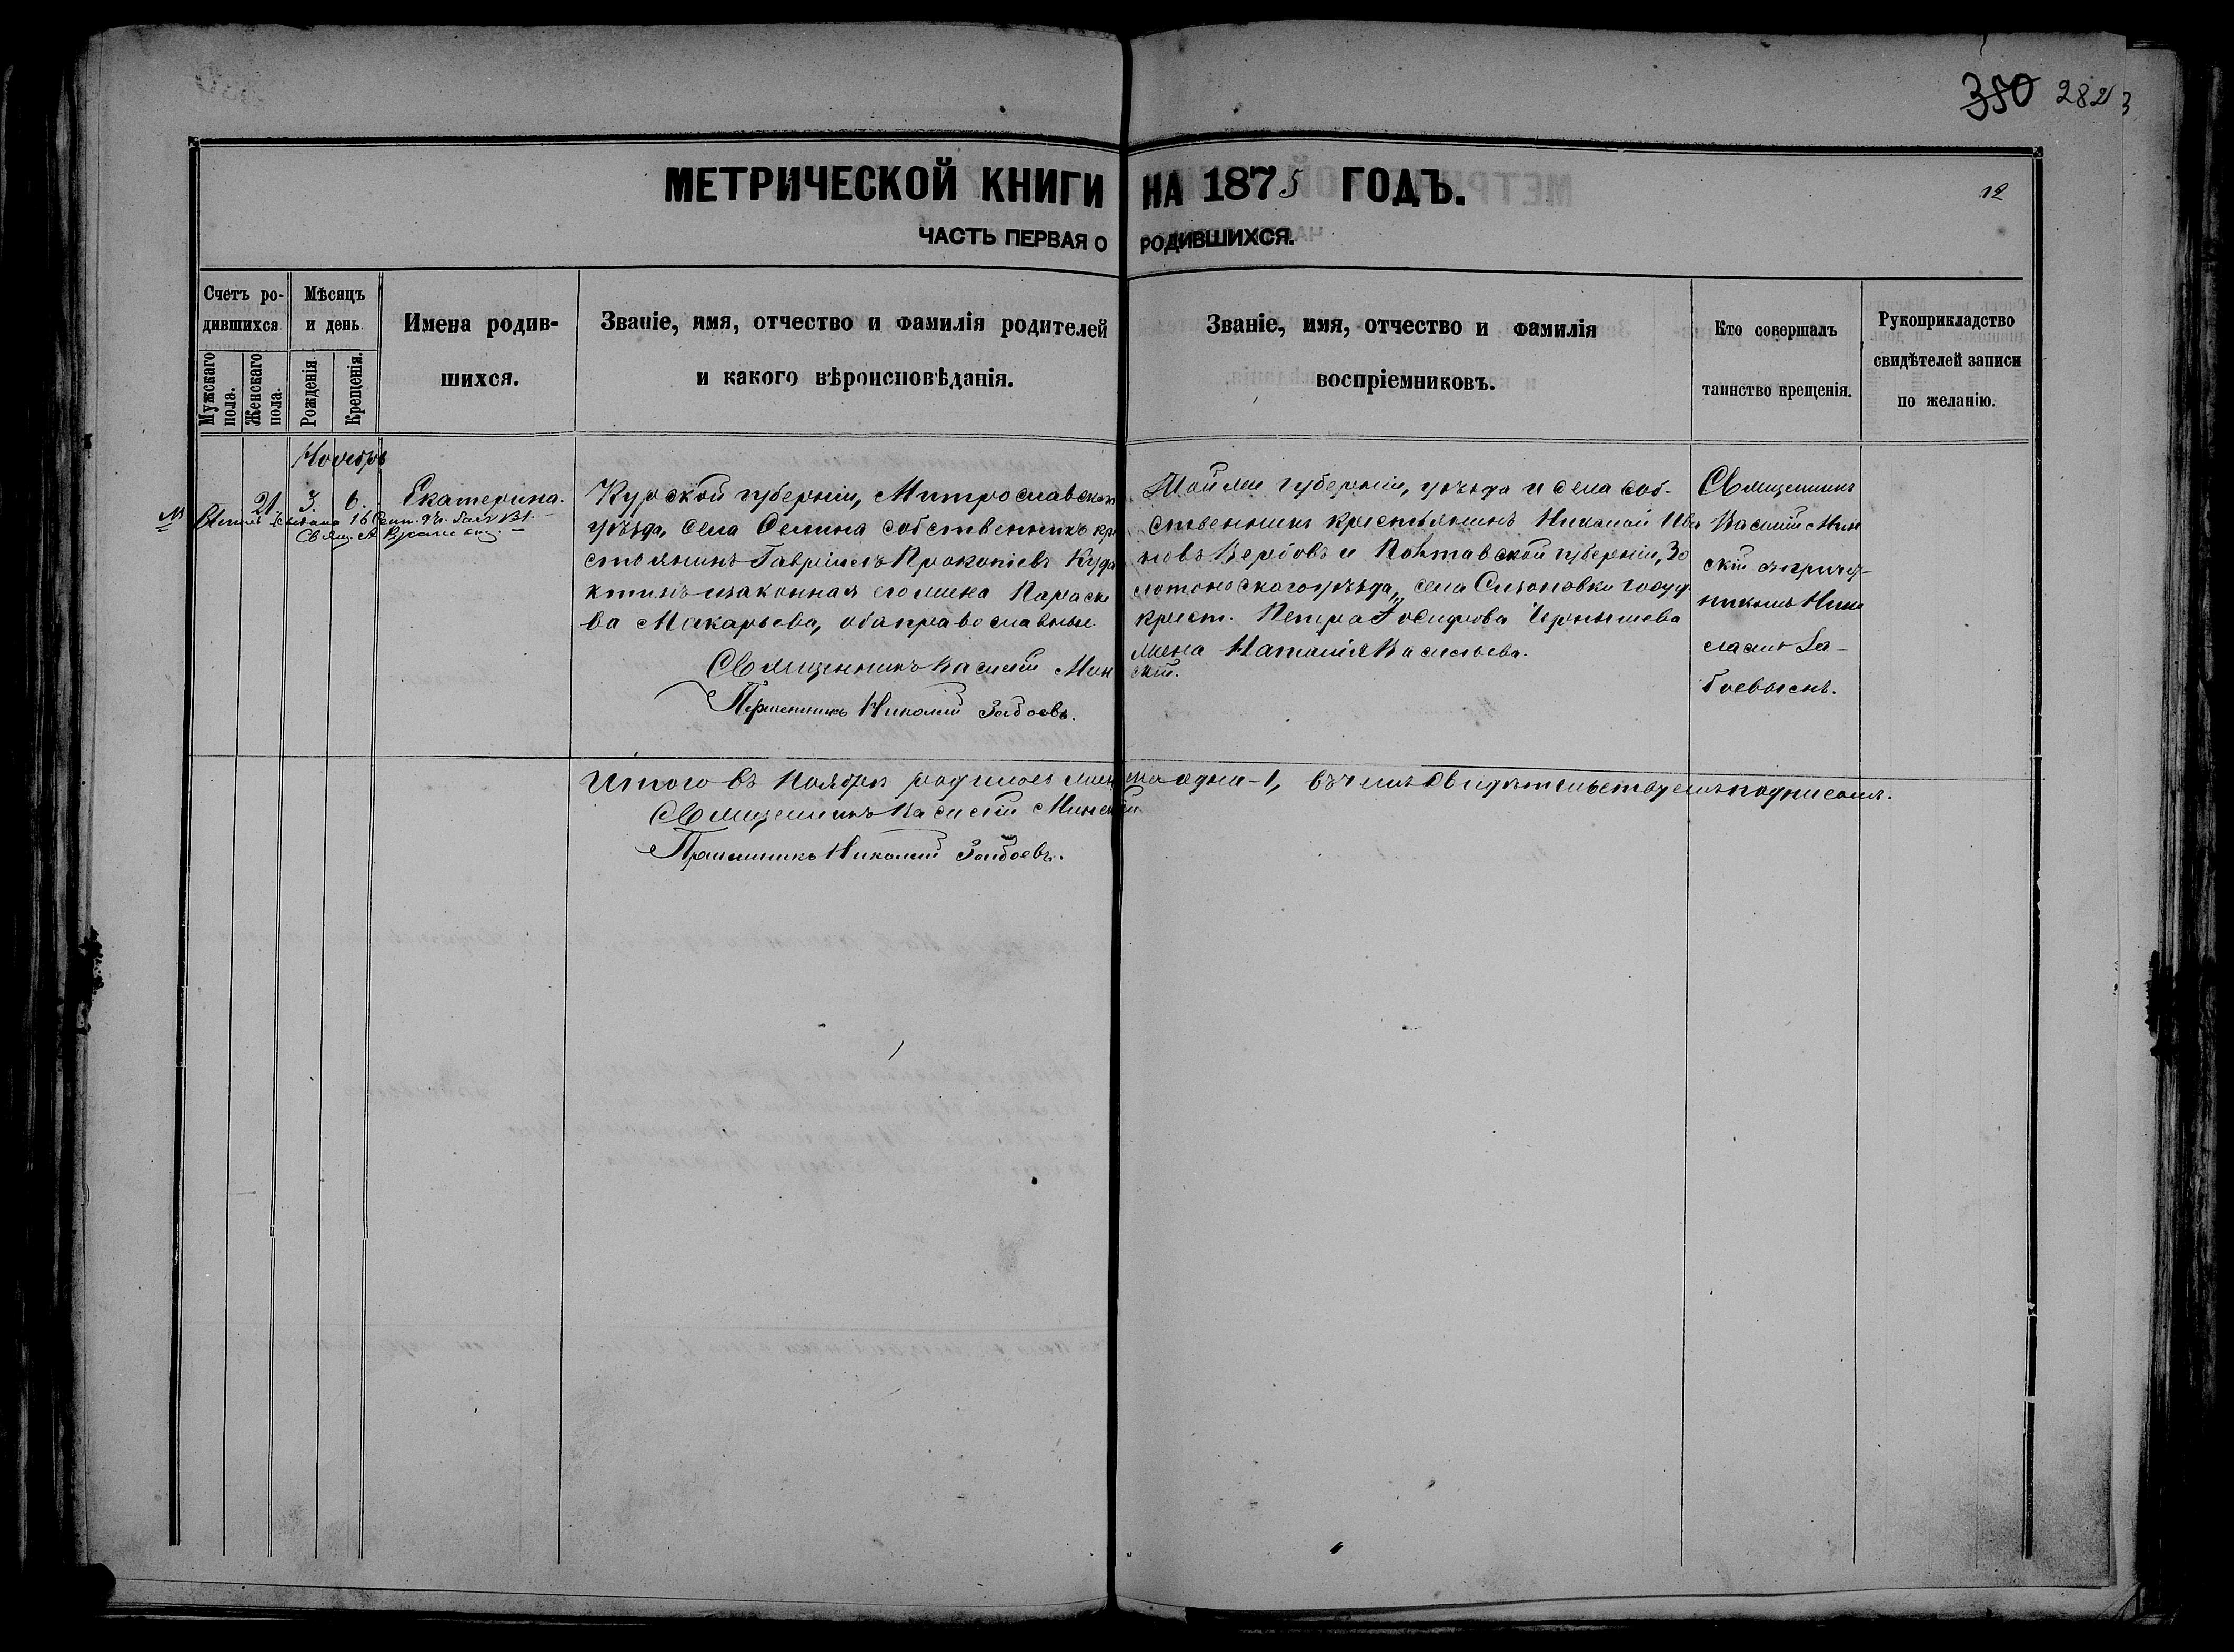 350 282 3
МЕТРИЧЕСКОЙ КНИГИ НА 1875 ГОДЪ.
12
ЧАСТЬ ПЕРВАЯ О РОДИВШИХСЯ.
Счетъ ро-
дившихся
Мужскаго пола.
Женскаго пола.
Мѣсяцъ
и день.
Рожденія
Крещенія.
Имена родив-
шихся.
Званіе, имя, отчество и фамилія родителей
и какого вѣроисповѣданія.
Званіе, имя, отчество и фамилія
воспріемниковъ.
Кто совершалъ
таинство крещенія.
Рукоприкладство
свидѣтелей записи
по желанію.
Ноябрь
21. 3. 6. Екатерина.
16 Сент.
Свящ.
Курской губерніи,
уѣзда, села собственникъ кре
стьянинъ Гавріилъ Прокопіевъ
и законная его жена Параске
ва Макарьева, оба православные.
Священникъ Василій Минскій.
Николай Забоевъ.
Той же губерніи, уѣзда и села соб-
ственникъ крестьянинъ Николай Ива
новъ Вербовъ и Полтавской губерніи, Зо
лотоноскаго уѣзда, села госуд.
крест. Петра Іосифова Чернышева
жена Наталія Васильева.
Священникъ
Василій Мин
скій съ
Нико
лаемъ За-
боевымъ.
Итого въ Ноябрѣ родилось жен ска одна - 1, въ чемъ свидѣтельствуемъ подписомъ.
Священникъ Василій Минскій
Николай Забоевъ.